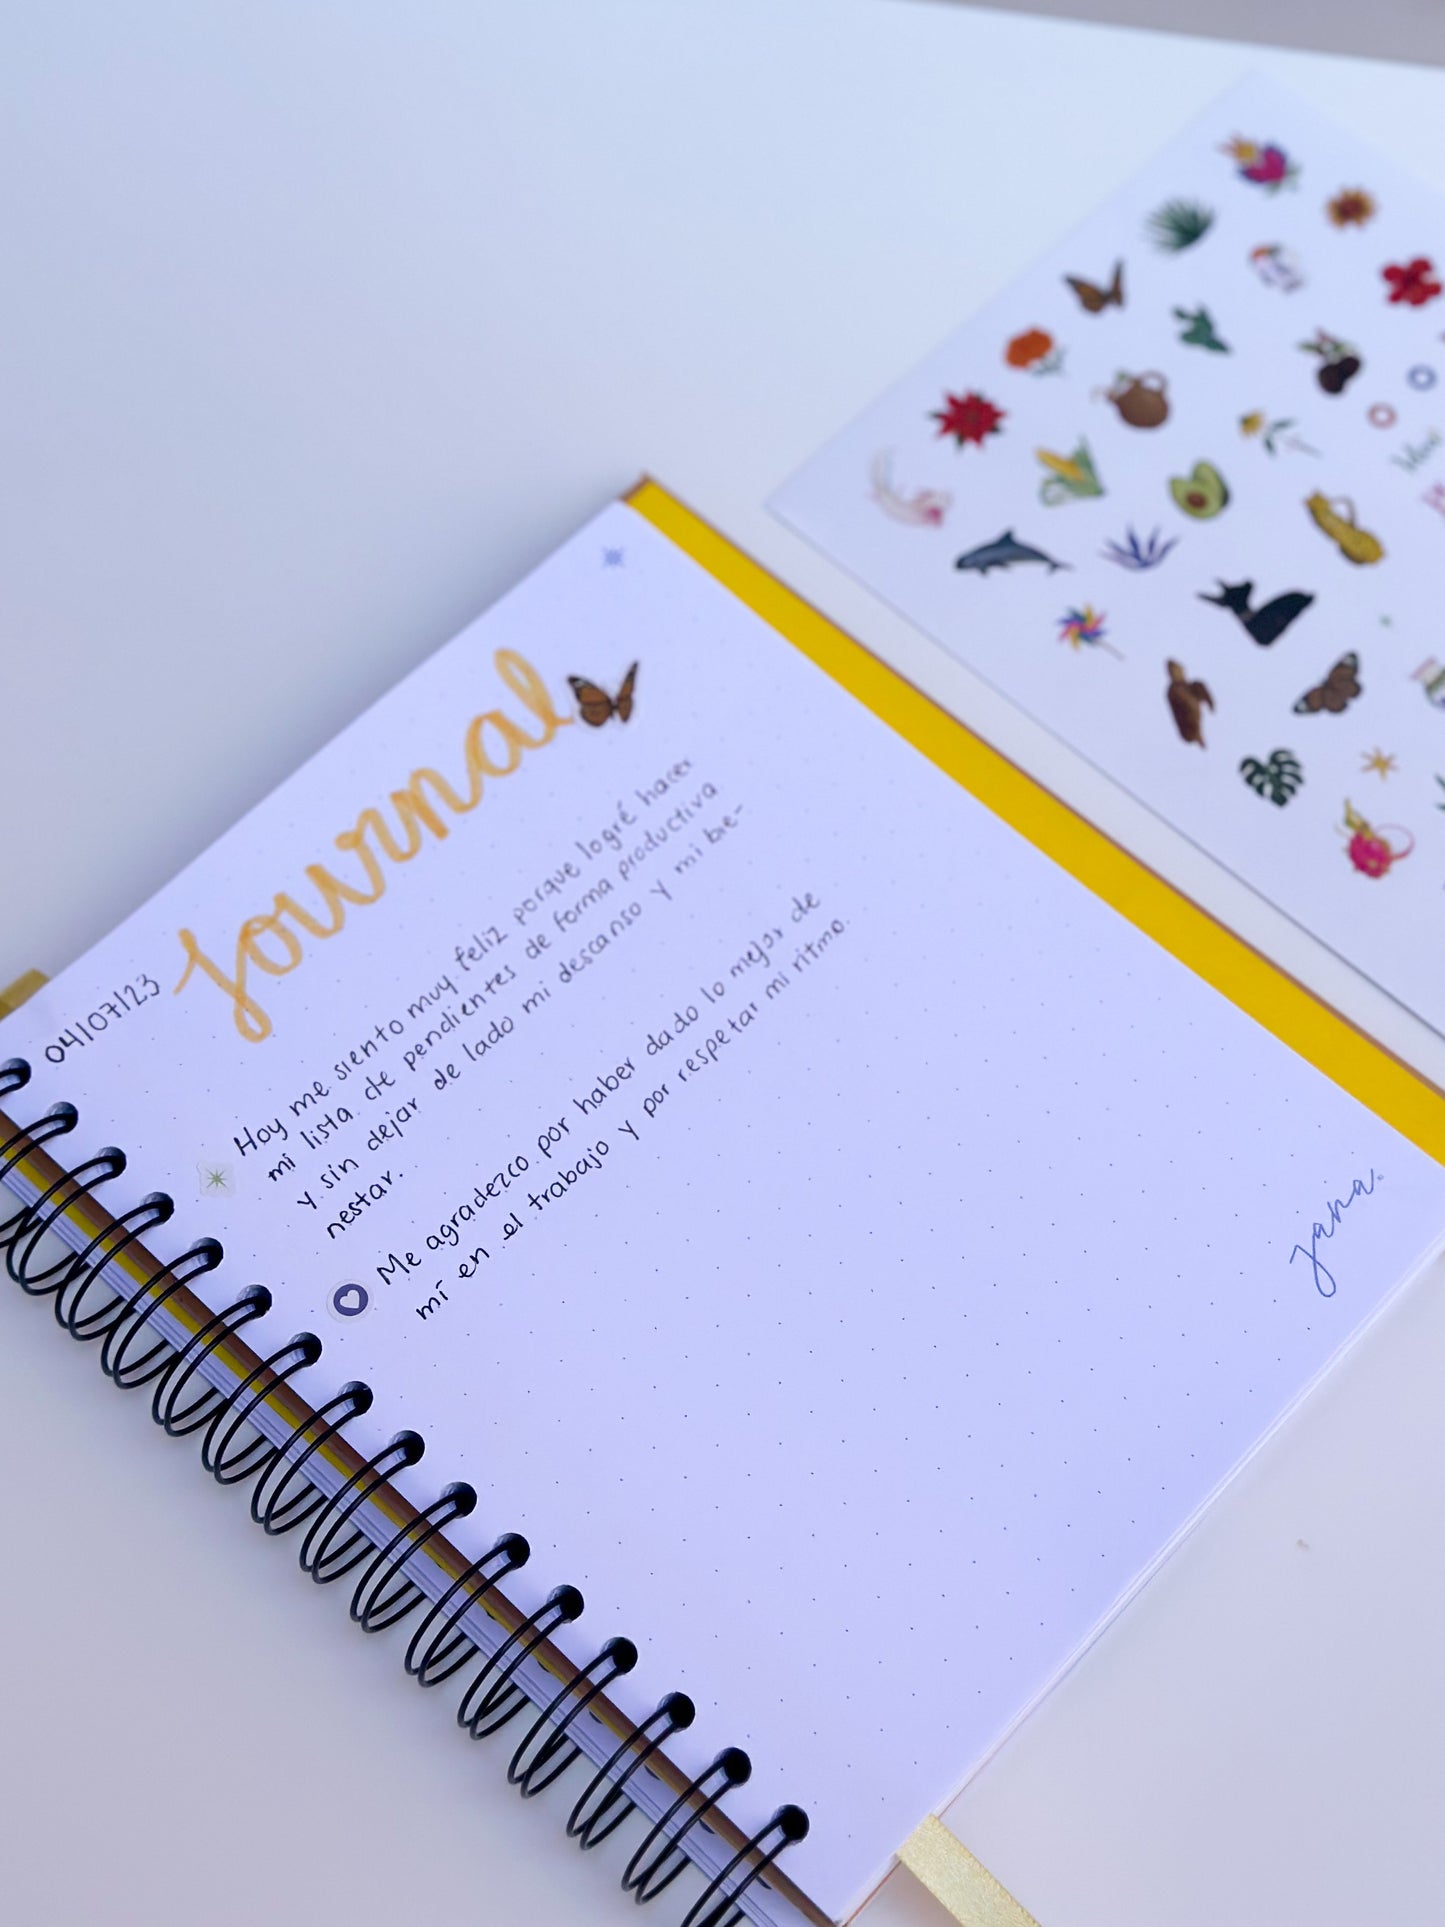 04/07/23
Journal
Hoy me siento muy feliz porque logré hacer
mi lista de pendientes de forma productiva
y sin dejar de lado mi descanso y mi bie-
nestar.
Me agradezco por haber dado lo mejor de
mí en el trabajo y por respetar mi ritmo.
jana.